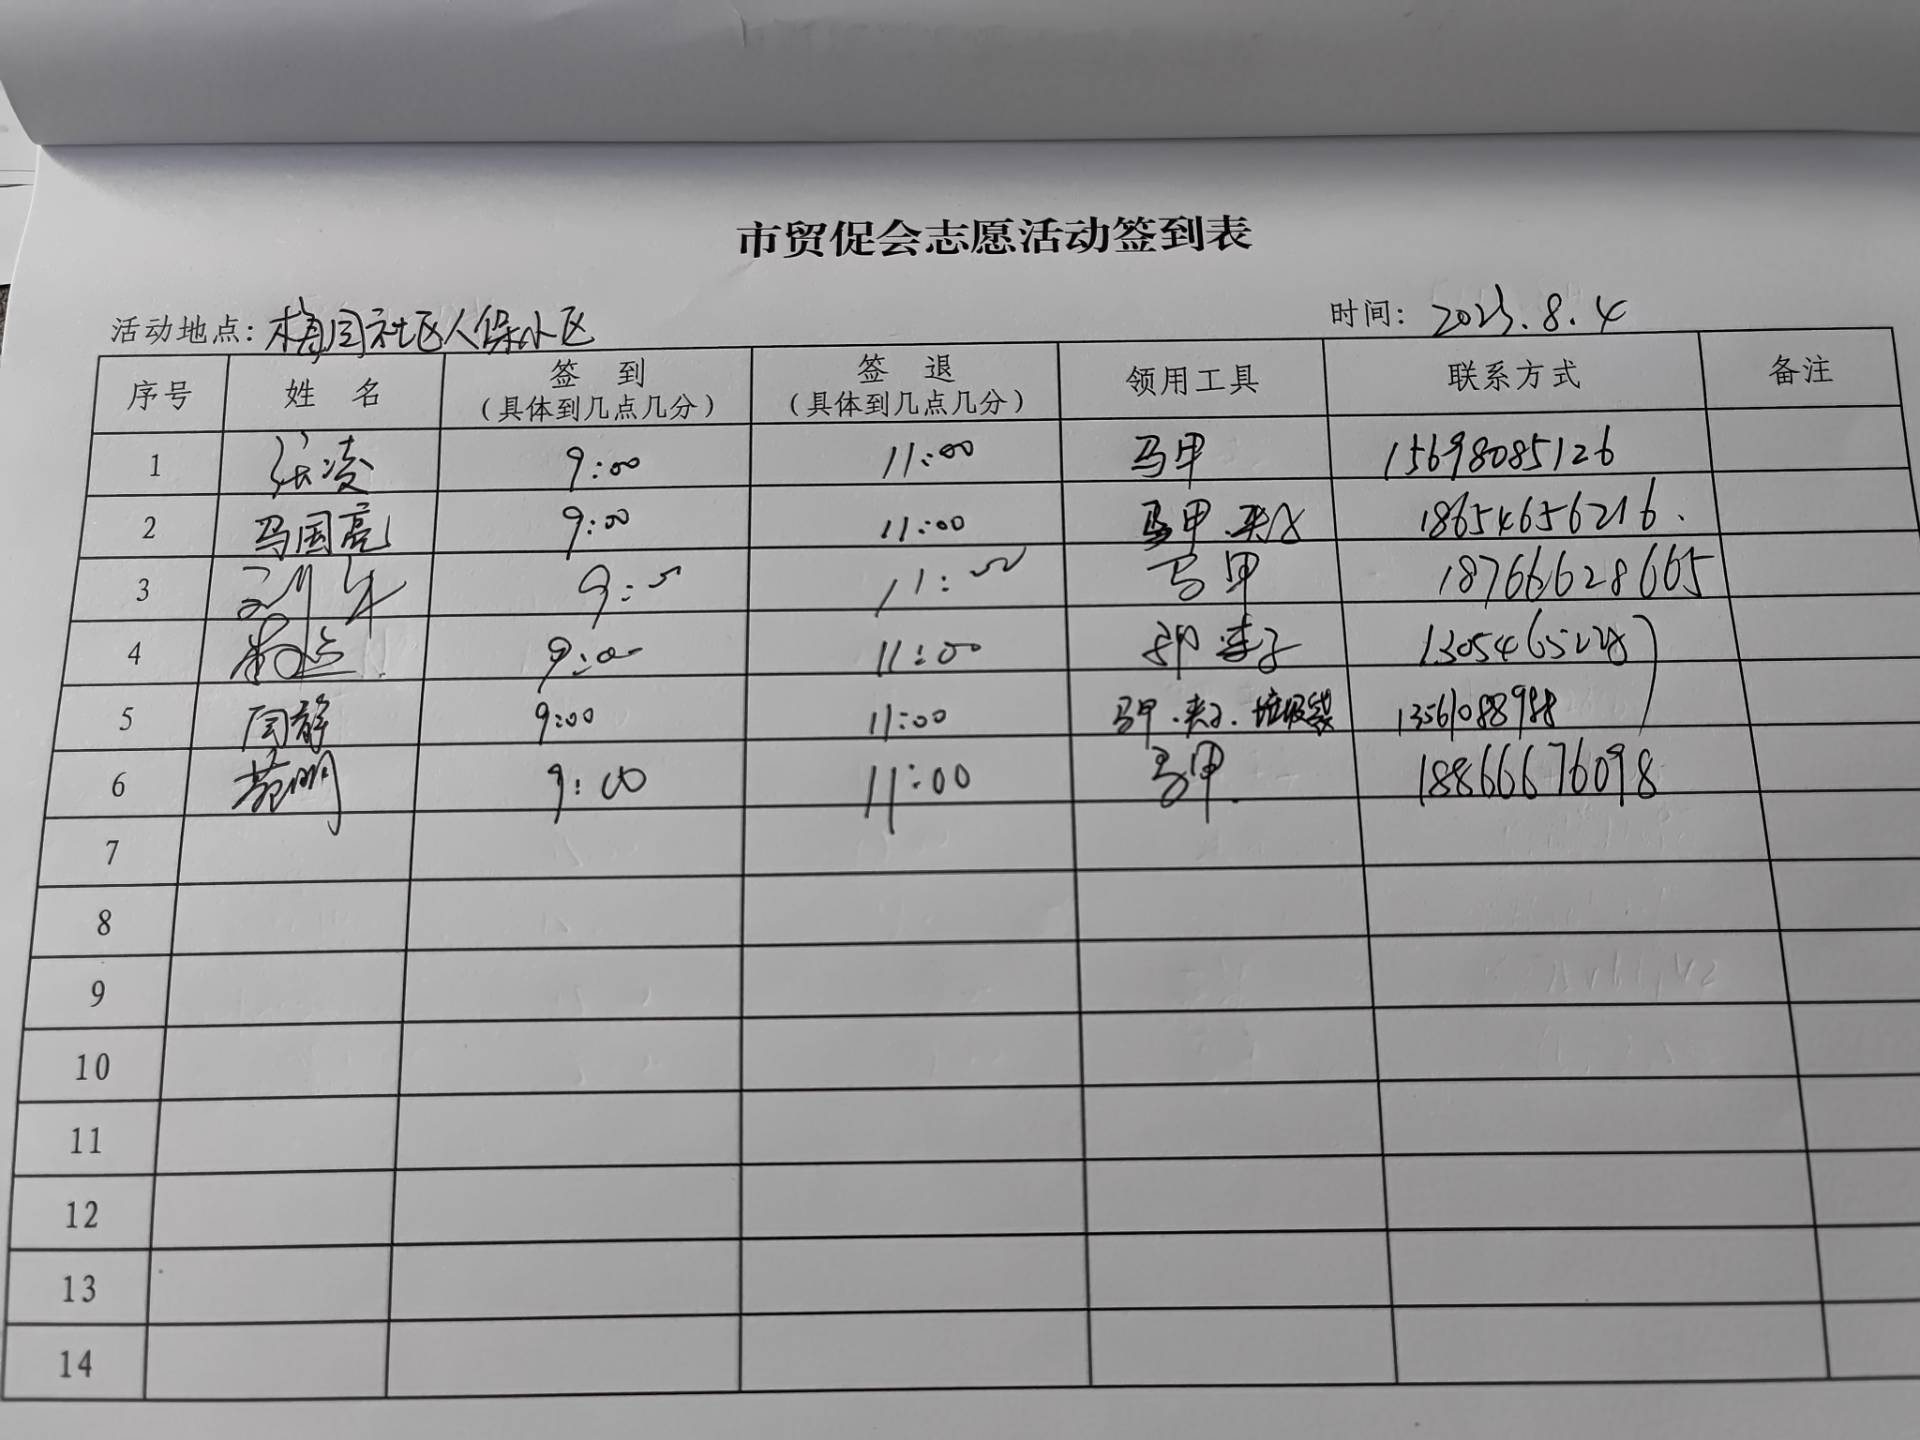 市贸促会志愿活动签到表
活动地点: 梅园社区人保小区 时间: 2023.8.4
序号 姓 名 签 到 (具体到几点几分) 签 退 (具体到几点几分) 领用工具 联系方式 备注
1 张凌 9:00 11:00 马甲 15698085126
2 马国亮 9:00 11:00 马甲.夹子 18654656216.
3 9:00 11:00 马甲 18766628665
4 9:00 11:00 夹子
5 闫静 9:00 11:00 马甲.夹子.垃圾袋 13561088988
6 苑明 9:00 11:00 马甲. 18866676098
7
8
9
10
11
12
13
14